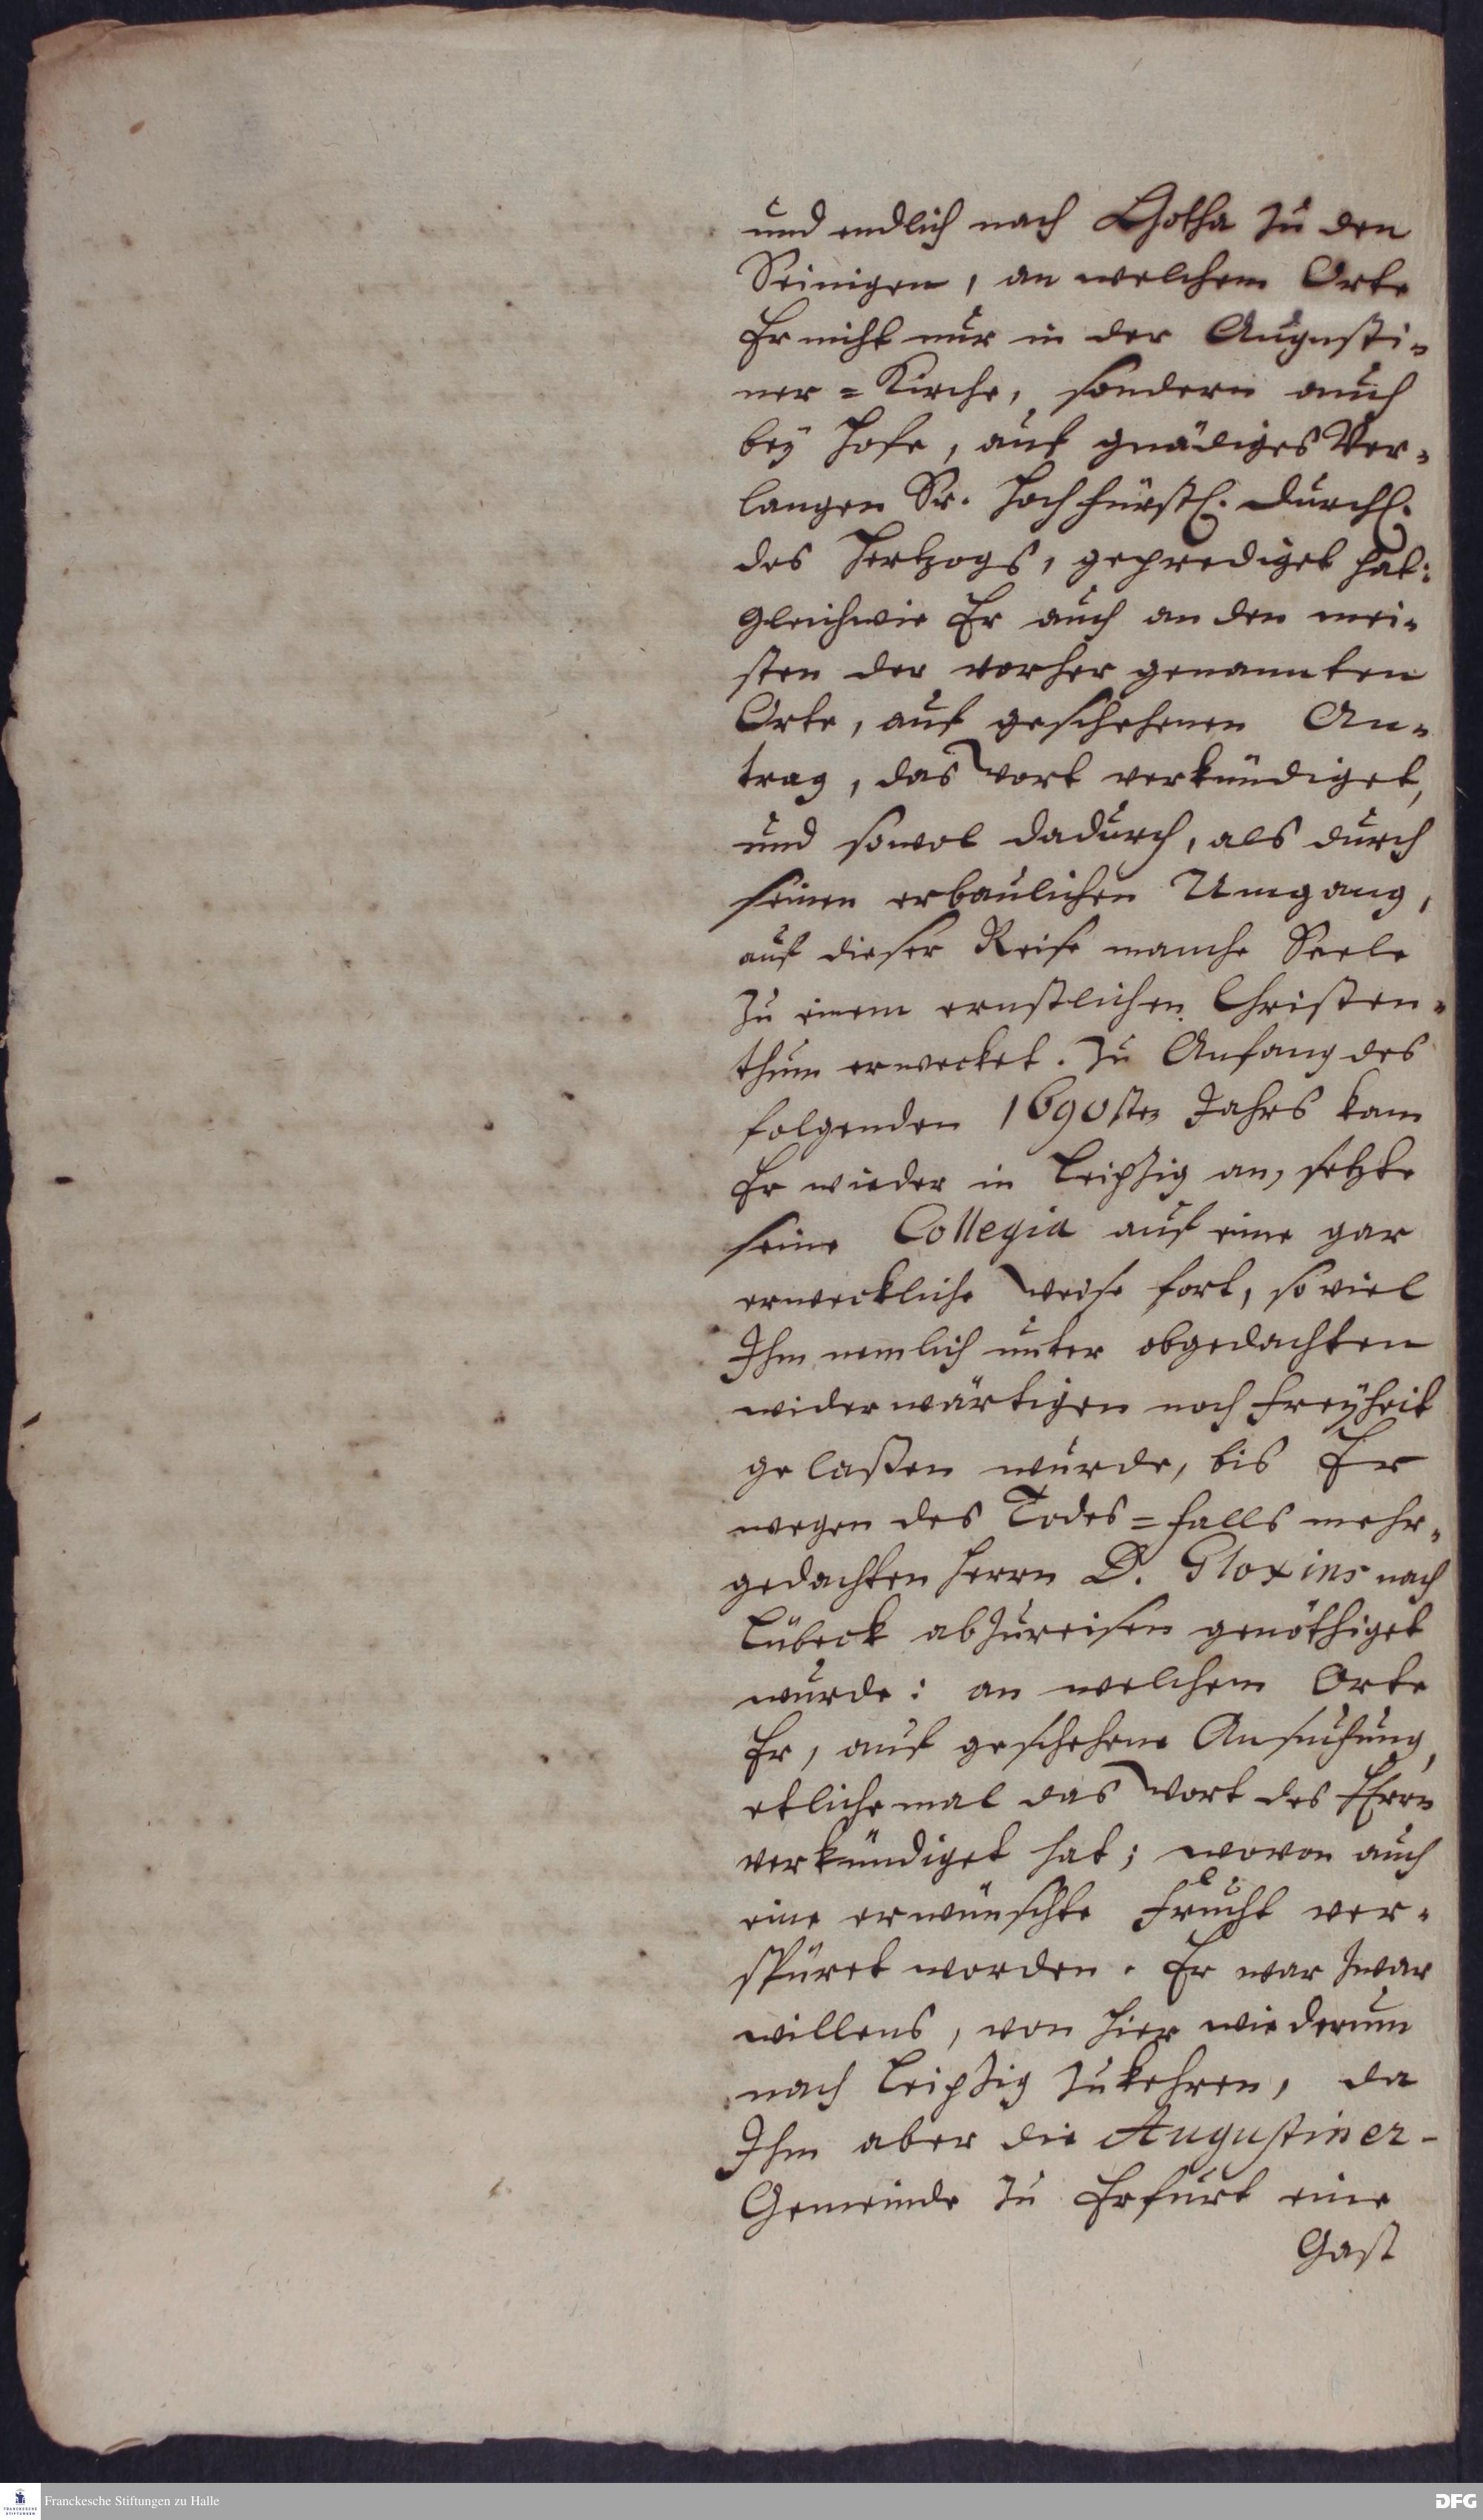 und endlich nach Gotha zu den
Seinigen, an welchem Orte
Er nicht nur in der Augusti-
ner=Kirche, sondern auch
bey Hofe, auf gnädiges Ver-
langen Sr. Hochfürstl. Durchl.
des Hertzogs, geprediget hat:
gleichwie Er auch an den mei-
sten der vorher genannten
Orte, auf geschehenen An-
trag, das Wort verkündiget,
und sowol dadurch, als durch
seinen erbaulichen Umgang,
auf dieser Reise manche Seele
zu einem ernstlichen Christen-
thum erwecket. Zu Anfang des
folgenden 1690sten Jahrs kam
Er wieder in Leipzig an, setzte
seine Collegia auf eine gar
erweckliche Weise fort, so viel
Ihm nemlich unter obgedachten
widerwärtigen noch Freyheit
gelaßen wurde, bis Er
wegen des Todes=Falls mehr-
gedachten Herrn D. Gloxins nach
Lübeck abzureisen genöthiget
wurde: an welchem Orte
Er, auf geschehene Ansuchung,
etliche mal das Wort des HErrn
verkündiget hat; wovon auch
eine erwünschte Frucht ver-
spüret worden. Er war zwar
willens, von hier wiederum
nach Leipzig zukehren, da
Ihm aber die Augustiner-
Gemeinde zu Erfurt eine
Gast
Franckesche Stiftungen zu Halle
FRANCKESCHE STIFTUNGEN
DFG